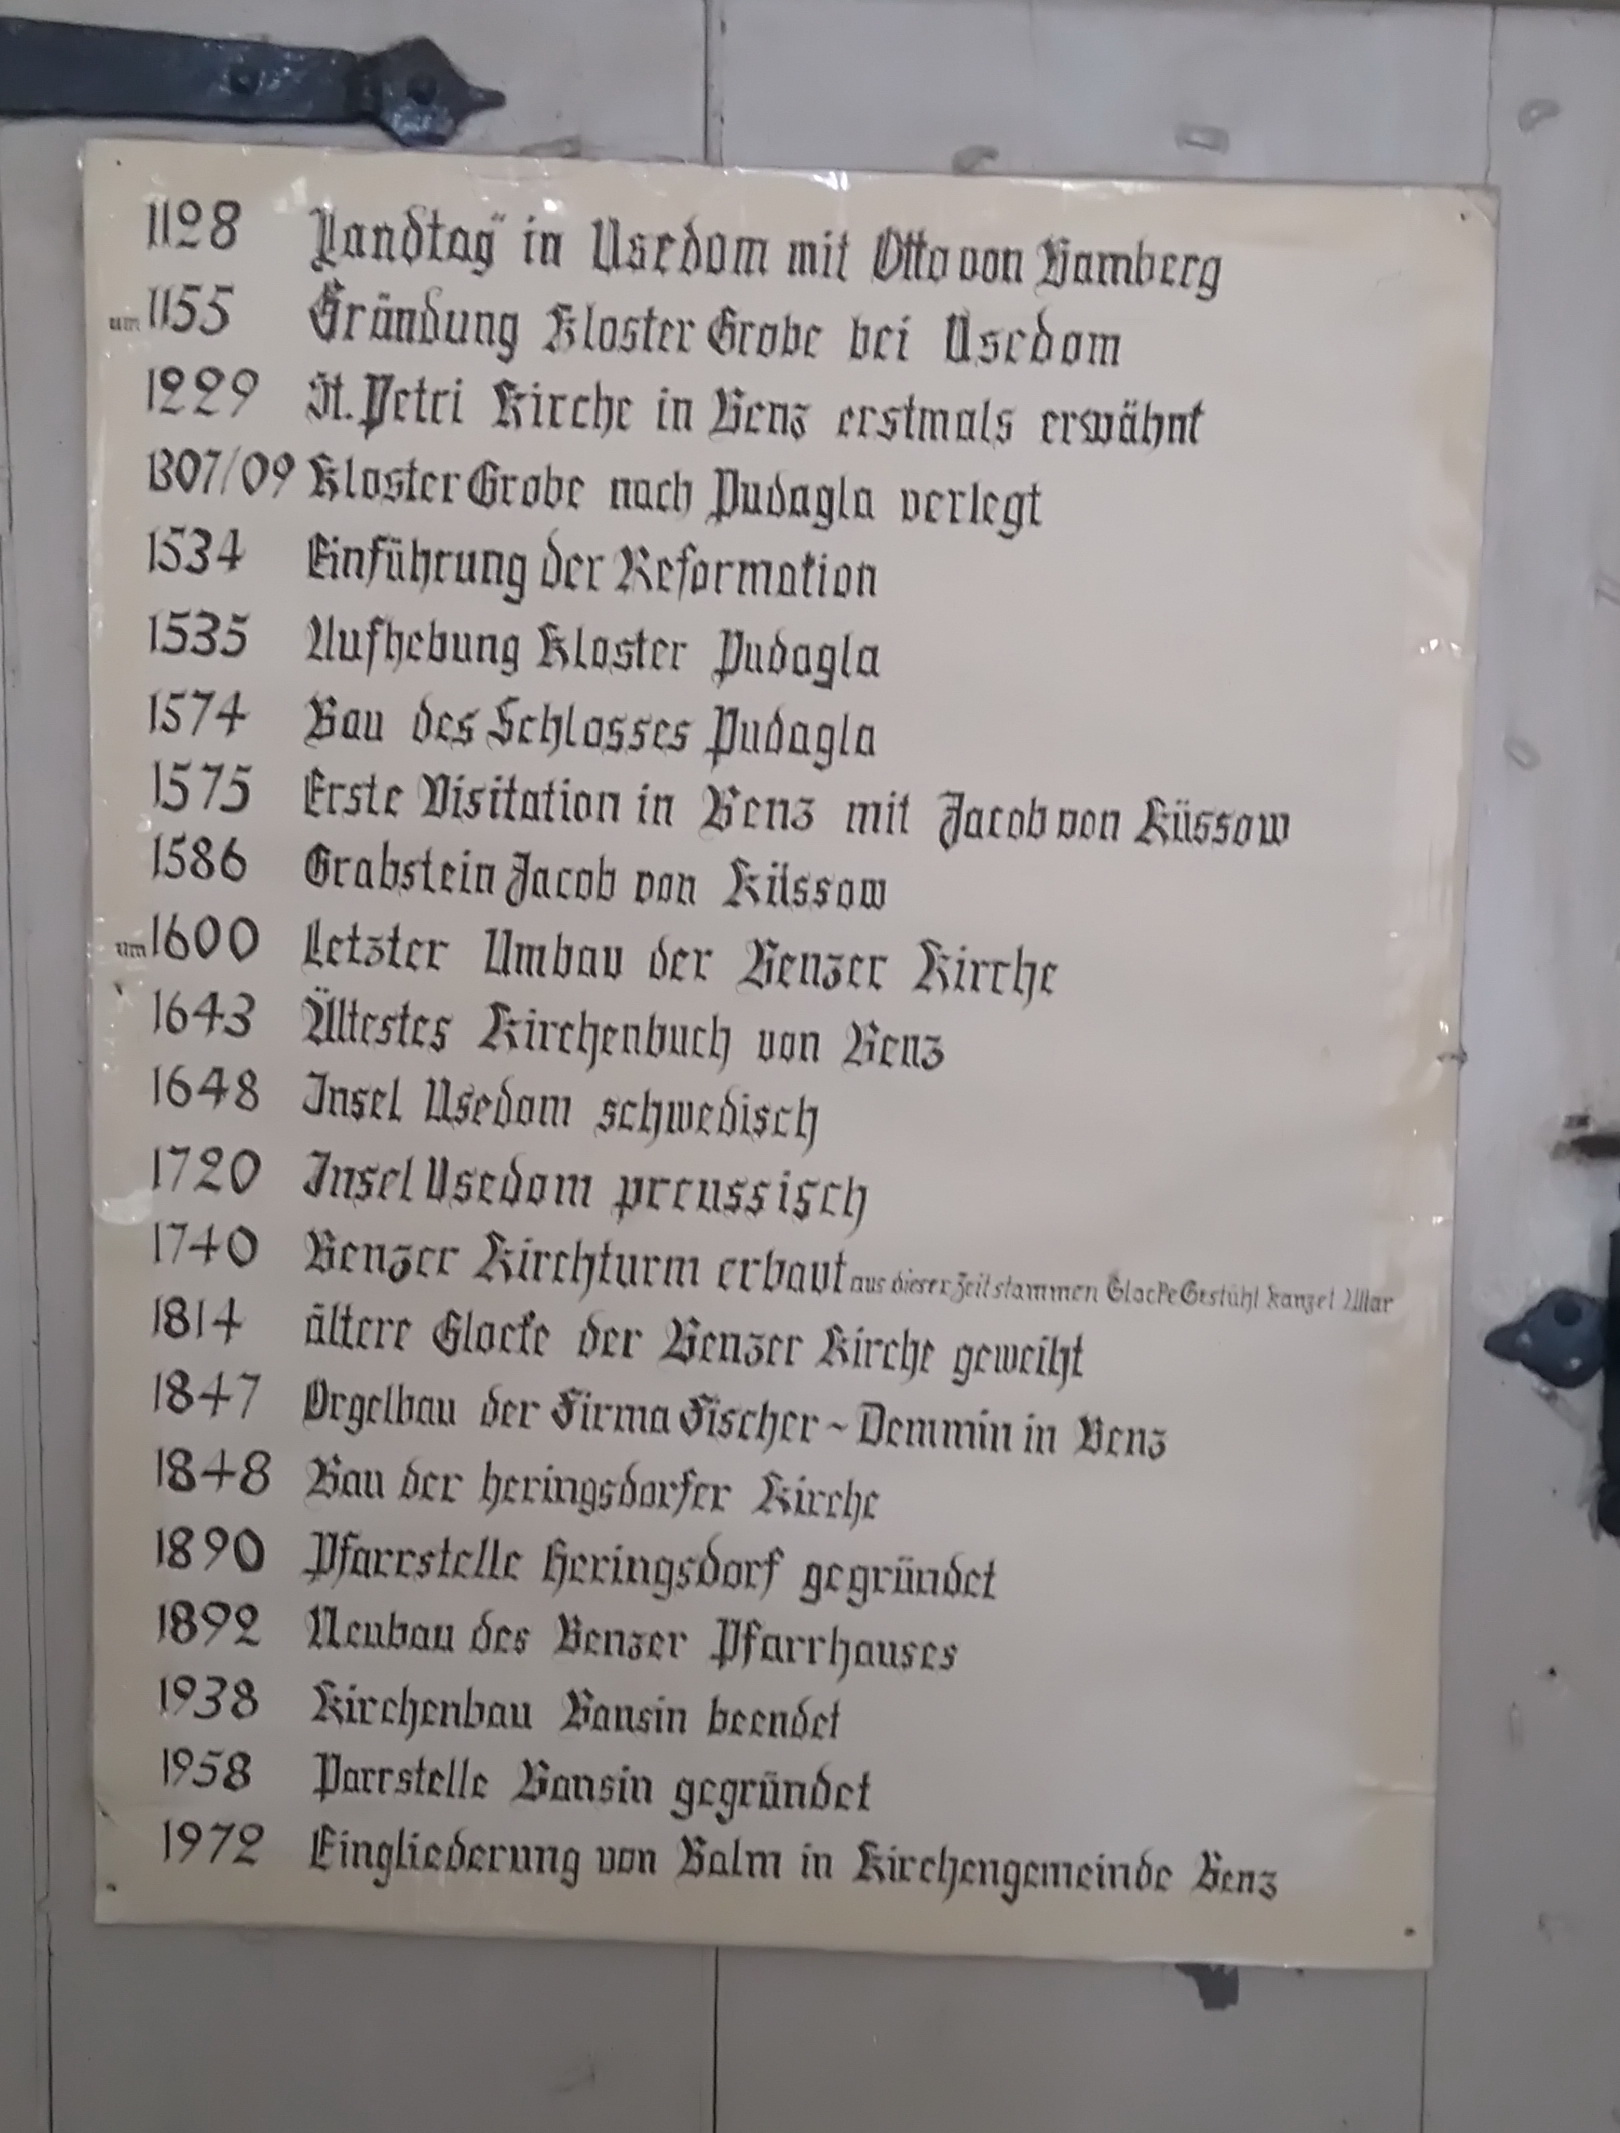 1128 „Landtag“ in Usedom mit Otto von Bamberg
um 1155 Gründung Kloster Grobe bei Usedom
1229 St. Petri Kirche in Benz erstmals erwähnt
1307/09 Kloster Grobe nach Pudagla verlegt
1534 Einführung der Reformation
1535 Aufhebung Kloster Pudagla
1574 Bau des Schlosses Pudagla
1575 Erste Visitation in Benz mit Jacob von Küssow
1586 Grabstein Jacob von Küssow
um 1600 Letzter Umbau der Benzer Kirche
1643 Ältestes Kirchenbuch von Benz
1648 Insel Usedom schwedisch
1720 Insel Usedom preussisch
1740 Benzer Kirchturm erbaut aus dieser Zeit stammen Glocke Gestühl Kanzel Altar
1814 ältere Glocke der Benzer Kirche geweiht
1847 Orgelbau der Firma Fischer ~ Demmin in Benz
1848 Bau der heringsdorfer Kirche
1890 Pfarrstelle Heringsdorf gegründet
1892 Neubau des Benzer Pfarrhauses
1938 Kirchenbau Bansin beendet
1958 Parrstelle Bansin gegründet
1972 Eingliederung von Balm in Kirchengemeinde Benz